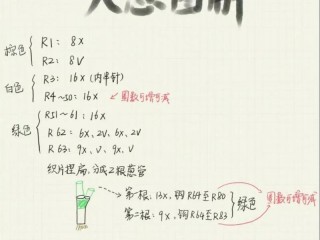 棕色 { R1: 8X
R2: 8V
白色 { R3: 16X (内半针)
R4~50: 16X 圈数可增可减
绿色 { R51~61: 16X
R62: 6X, 2V, 6X, 2V
R63: 9X, V, 9X, V
织片捏扁, 分成2根葱管
第一根: 13X, 钩R64至R80 } 绿色 圈数可增可减
第二根: 9X, 钩R64至R83